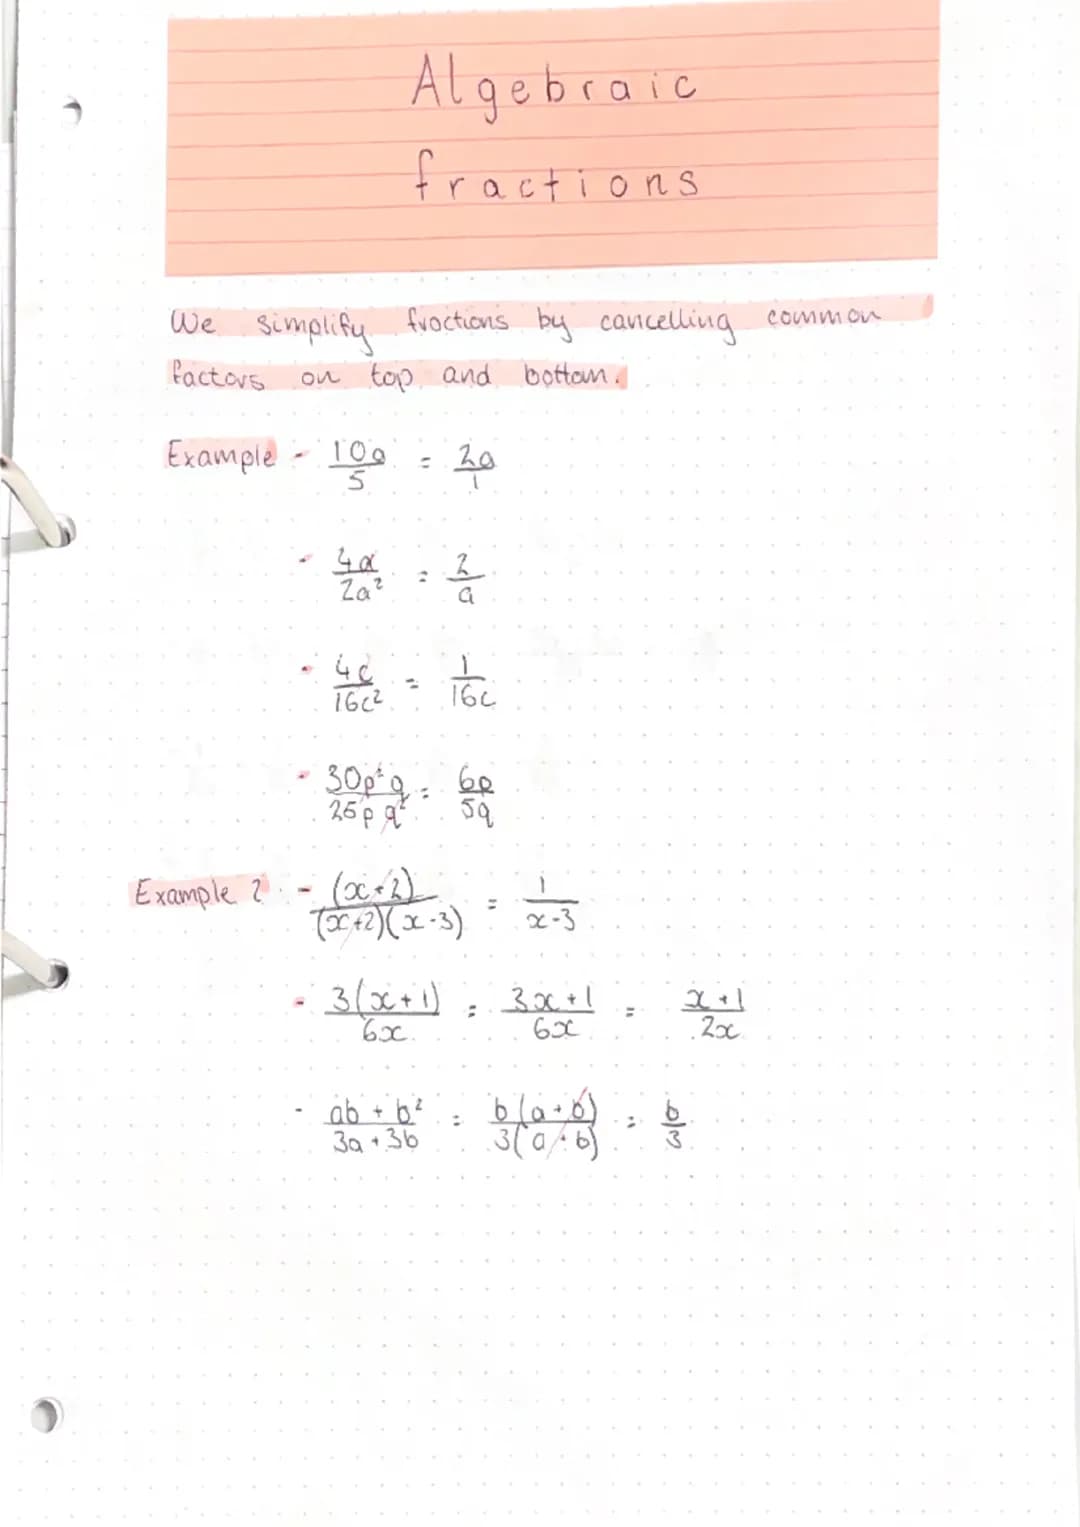 Algebraic
fractions
We simplify fractions by cancelling common
factors on top and bottom.
Example - 10a/5 = 2a/1
- 4a/2a² = 2/a
- 4c/16c² = 1/16c
- 30p²q/25pq² = 6p/5q
Example 2 - (x+2)/(x+2)(x-3) = 1/x-3
- 3(x+1)/6x = 3x+1/6x = x+1/2x
- ab + b²/3a + 3b = b(a+b)/3(a+b) = b/3